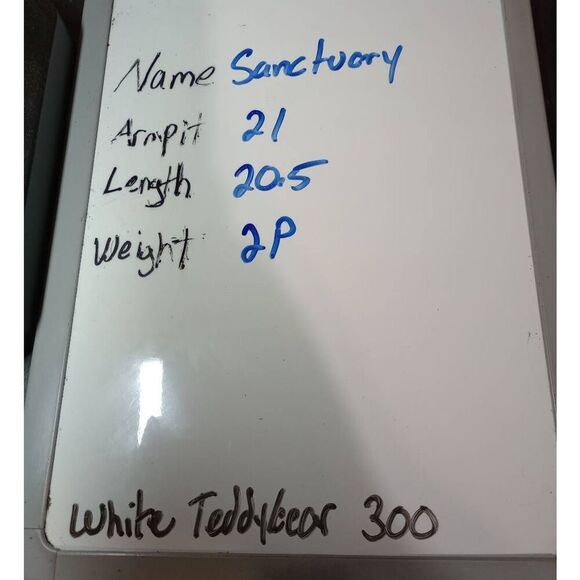 Name Sanctuary
Armpit 21
Length 20.5
Weight 2P
White Teddybear 300